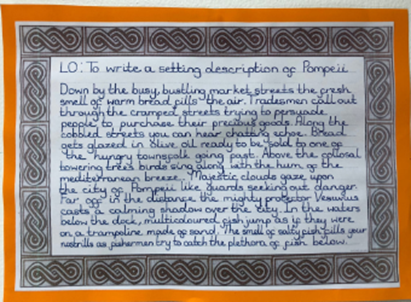 LO: To write a setting description of Pompeii
Down by the busy, bustling market streets the fresh
smell of warm bread fills the air. Tradesmen call out
through the cramped streets trying to persuade
people to purchase their precious goods. Along the
cobbled streets you can hear chatting echoe. Bread
gets glazed in olive oil ready to be sold to one of
the hungry townsfolk going past. Above the collosal
towering trees birds sing along with the hum of the
mediterranean breeze. Majestic clouds gaze upon
the city of Pompeii like guards seeking out danger.
Far off in the distance the mighty protector Vesuvius
casts a calming shadow over the city. In the waters
below the dock, multicoloured fish jump as if they were
on a trampoline made of sand. The smell of salty fish fills your
nostrils as fisherman try to catch the plethora of fish below.